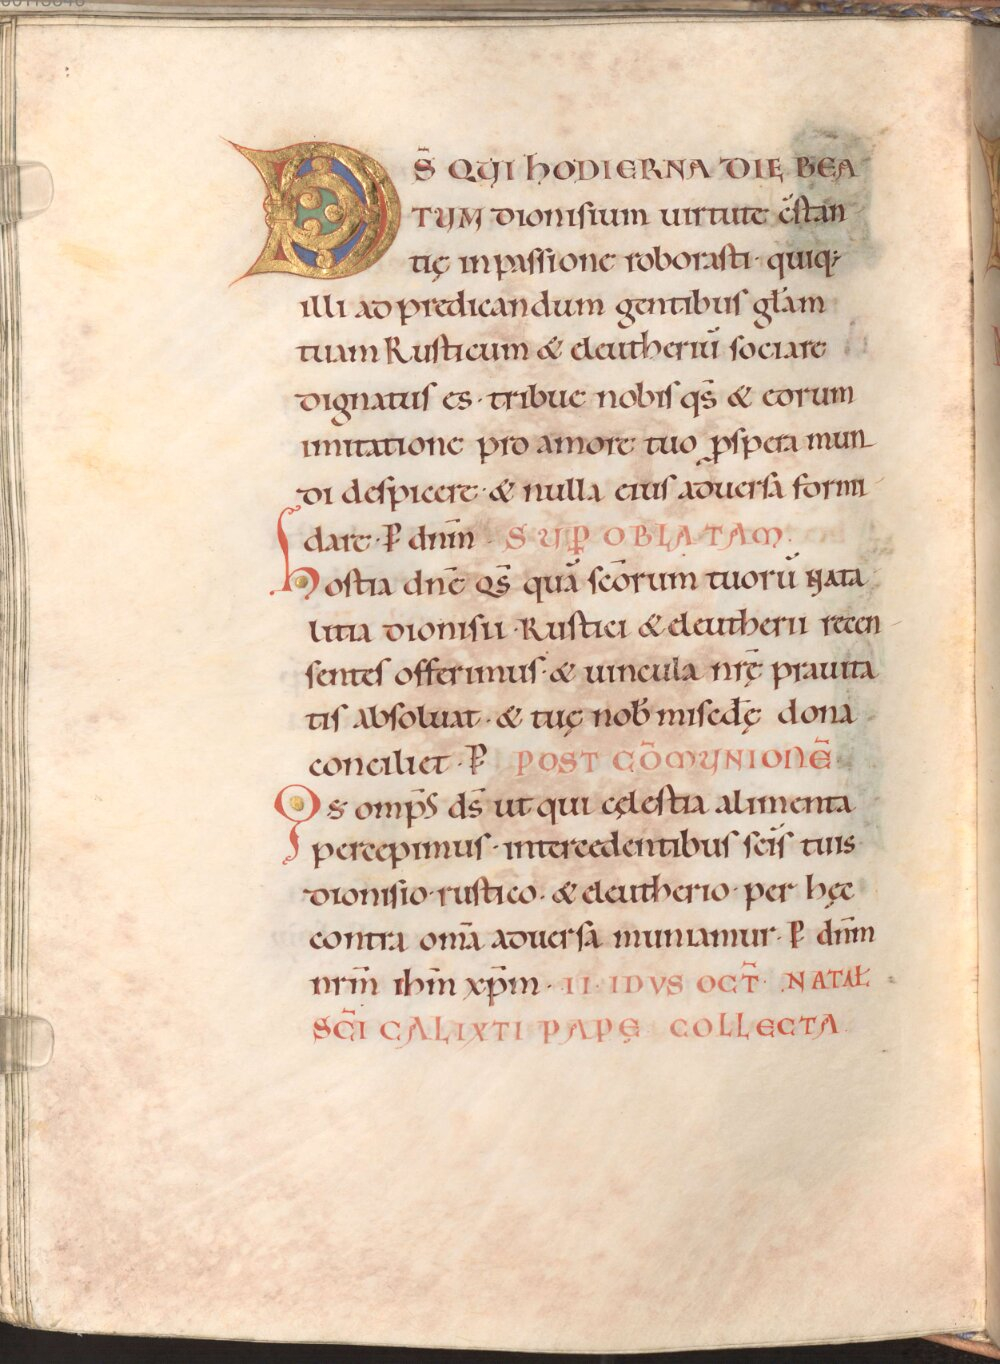 DS̄ QUI hODIERNA DIE BEA
TUM dionisium uirtute c̄stan
tię inpassione roborasti · quiq;
illi ad predicandum gentibus gl̄am
tuam Rusticum & eleutheriū sociare
dignatus es · tribue nobis qs̄ & eorum
imitatione pro amore tuo ꝓspera mun
di despicere · & nulla eius aduersa formi
dare · P̄ dnm̄ SUP̄ OBLATAM.
hostia dn̄e qs̄ quā sc̄orum tuorū nata
litia dionisii · Rustici & eleutherii recen
sentes offerimus · & uincula nr̄ę prauita
tis absoluat · & tuę nob̄ misc̄dę dona
conciliet · P̄ POST CŌMUNIONĒ
Qs omp̄s ds̄ ut qui cęlestia alimenta
percepimus · intercedentibus sc̄is tuis
dionisio · rustico · & eleutherio · per hęc
contra om̄a aduersa muniamur · P̄ dnm̄
nrm̄ ihm̄ xp̄m · II · IDVS OCT̄ · NATAƚ
SC̄I CALIXTI PAPĘ COLLECTA